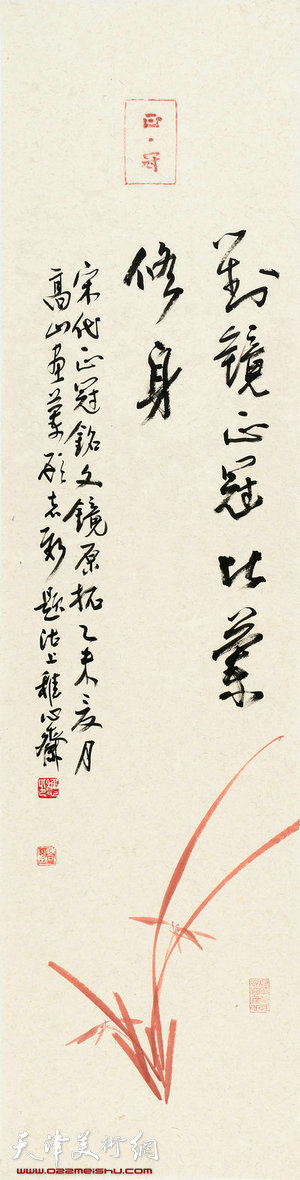 正·冠
對鏡正冠比蘭
修身
宋代正冠銘文鏡原拓乙未夏月
高山畫蘭顧志新題沽上雅心齋
天津美術網
www.022meishu.com